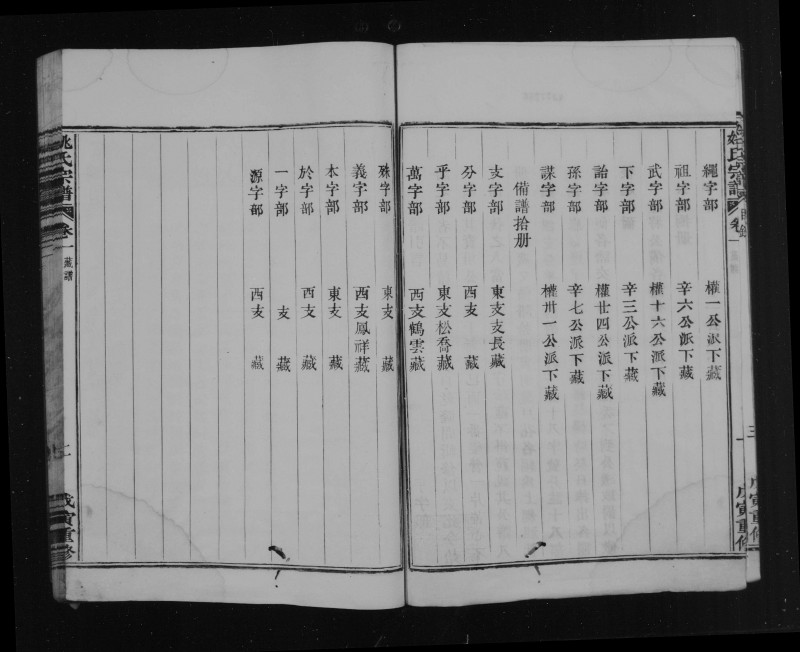 姚氏宗譜
卷一
戊寅重修
繩字部 權一公派下藏
祖字部 辛六公派下藏
武字部 權十六公派下藏
下字部 辛三公派下藏
詒字部 權廿四公派下藏
孫字部 辛七公派下藏
謀字部 權卅一公派下藏
備譜拾册
支字部 東支支長藏
分字部 西支 藏
乎字部 東支松喬藏
萬字部 西支鶴雲藏
殊字部 東支 藏
義字部 西支鳳祥藏
本字部 東支 藏
於字部 西支 藏
一字部 支 藏
源字部 西支 藏
姚氏宗譜
卷一
藏譜
二
戊寅重修